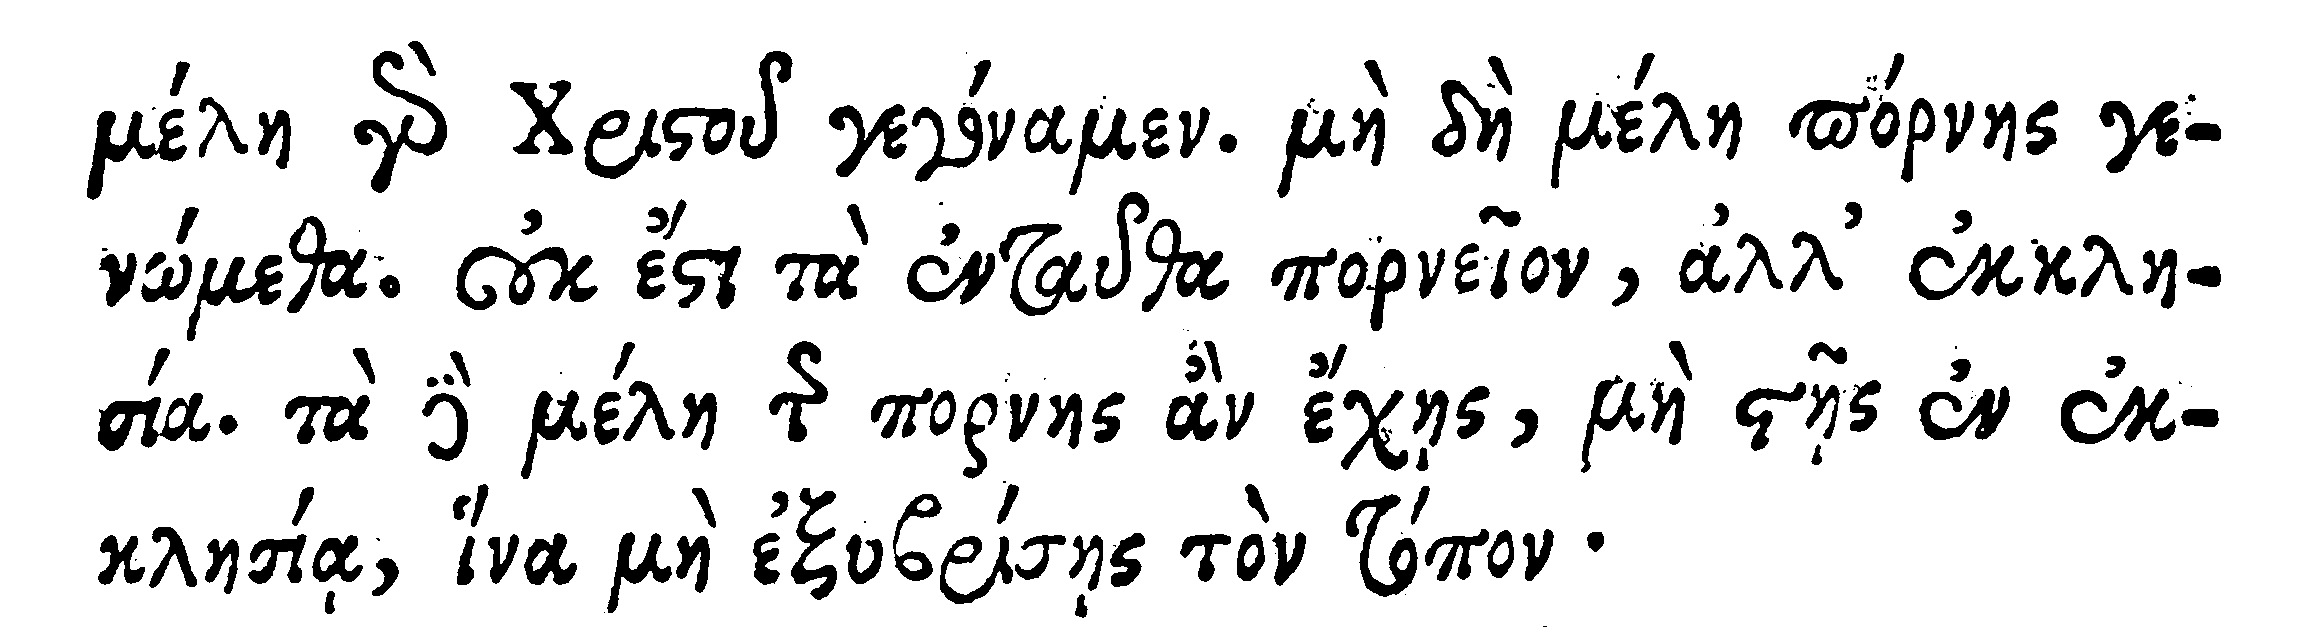 μέλη γὰρ Χριστοῦ γεγόναμεν. μὴ δὴ μέλη πόρνης γε-
νώμεθα. οὐκ ἔστι τὰ ἐνταῦθα πορνεῖον, ἀλλ’ ἐκκλη-
σία. τὰ δὲ μέλη τῆς πορνης ἂν ἔχῃς, μὴ στῇς ἐν ἐκ-
κλησίᾳ, ἵνα μὴ ἐξυβρίσῃς τὸν τόπον·